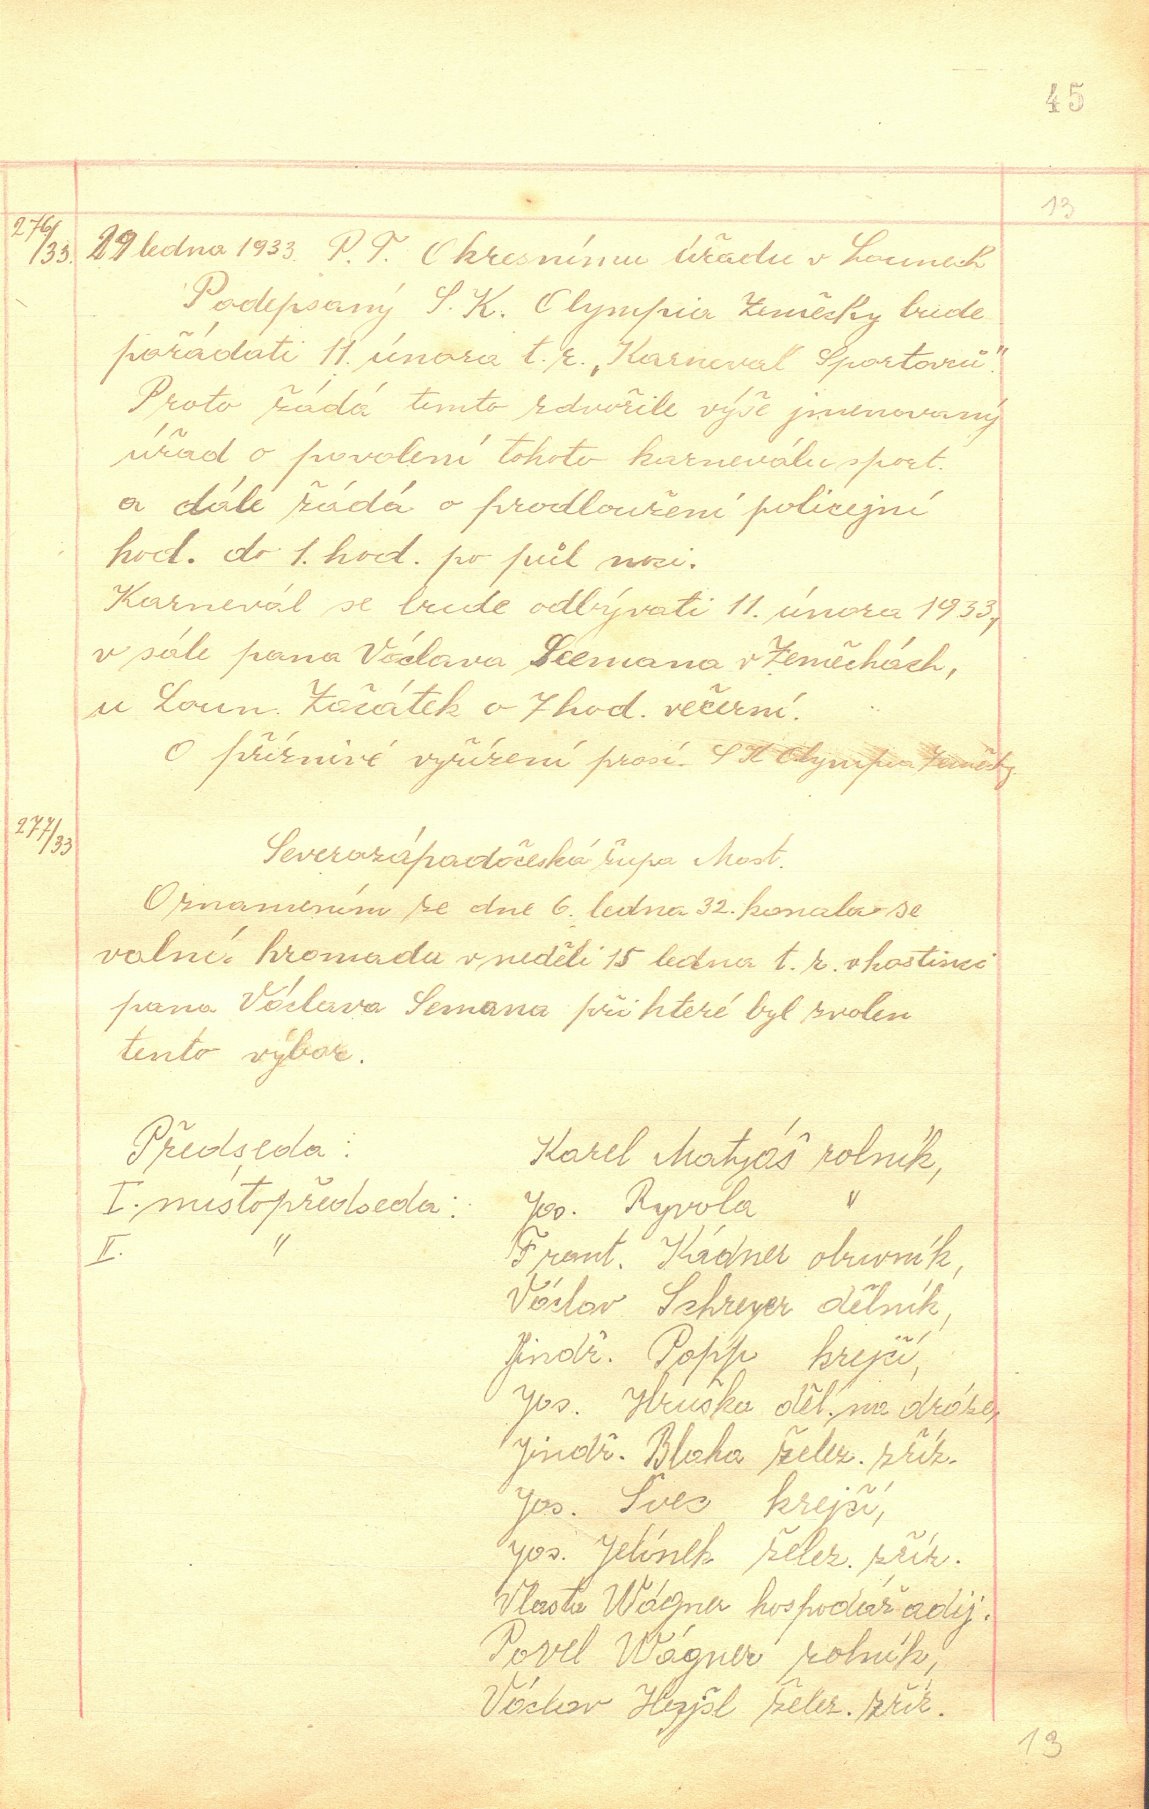 45
13
276/33. 29 ledna 1933. P. T. Okresnímu úřadu v Lounech
Podepsaný S. K. Olympia Zeměchy bude
pořádati 11. února t. r. „Karneval Sportovců".
Proto žádá tímto zdvořile výše jmenovaný
úřad o povolení tohoto karneválu sport.
a dále žádá o prodloužení policejní
hod. do 1. hod. po půl noci.
Karnevál se bude odbývati 11. února 1933,
v sále pana Václava Seemana v Zeměchách,
u Loun. Začátek o 7 hod. večerní.
O příznivé vyřízení prosí. S K Olympia Zeměchy
277/33
Severozápadočeská župa Most.
Oznamením ze dne 6. ledna 32. konala se
valná hromada v neděli 15 ledna t. r. v hostinci
pana Václava Semana při které byl zvolen
tento výbor.
Předseda: Karel Matyáš rolník,
I. místopředseda: Jos. Ryvola "
II. " Frant. Kádner obuvník,
Václav Schreyer dělník,
Jindř. Popp krejčí,
Jos. Hruška děl. na dráze,
Jindř. Blaha želez. zříz.
Jos. Švec krejčí,
Jos. Jelínek želez. zříz.
Vlasta Wágner hospodář adij.
Pavel Wágner rolník,
Václav Hejsl želez. zříz.
13